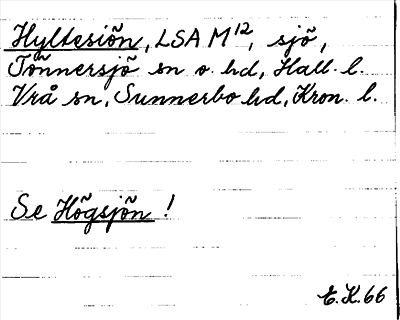 Hyltesiõn, LSA M¹², sjö,
Tönnersjö sn o. hd, Hall. l.
Vrå sn, Sunnerbo hd, Kron. l.
Se Högsjön !
E.K.66